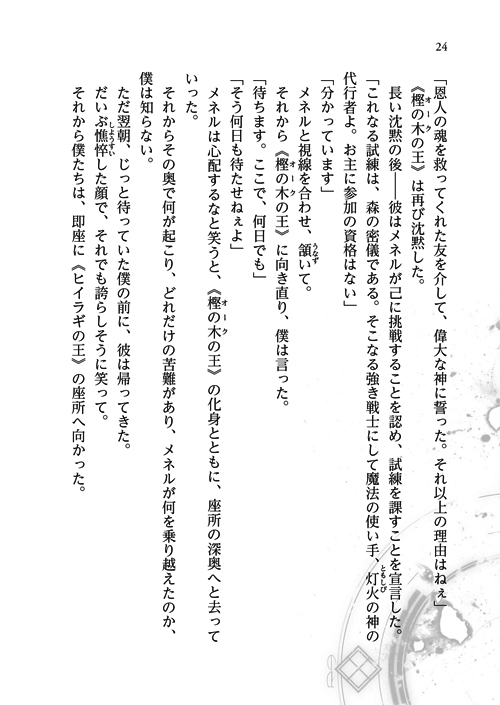 24
「恩人の魂を救ってくれた友を介して、偉大な神に誓った。それ以上の理由はねぇ」
《樫の木の王》は再び沈黙した。
オーク
長い沈黙の後――彼はメネルが己に挑戦することを認め、試練を課すことを宣言した。
「これなる試練は、森の密儀である。そこなる強き戦士にして魔法の使い手、灯火の神の
ともしび
代行者よ。お主に参加の資格はない」
「分かっています」
メネルと視線を合わせ、頷いて。
うなず
それから《樫の木の王》に向き直り、僕は言った。
オーク
「待ちます。ここで、何日でも」
「そう何日も待たせねぇよ」
メネルは心配するなと笑うと、《樫の木の王》の化身とともに、座所の深奥へと去って
オーク
いった。
それからその奥で何が起こり、どれだけの苦難があり、メネルが何を乗り越えたのか、
僕は知らない。
ただ翌朝、じっと待っていた僕の前に、彼は帰ってきた。
だいぶ憔悴した顔で、それでも誇らしそうに笑って。
しょうすい
それから僕たちは、即座に《ヒイラギの王》の座所へ向かった。